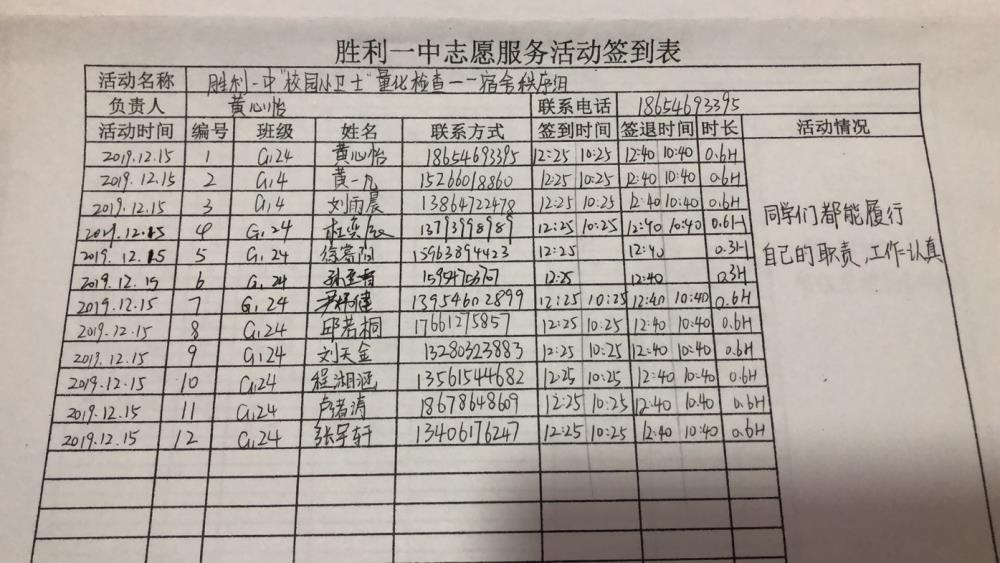 胜利一中志愿服务活动签到表
活动名称 胜利一中"校园小卫士"量化检查——宿舍秩序组
负责人 黄心怡 联系电话 18654693395
活动时间 编号 班级 姓名 联系方式 签到时间 签退时间 时长 活动情况
2019.12.15 1 G124 黄心怡 18654693395 12:25 10:25 12:40 10:40 0.6H
2019.12.15 2 G14 黄一凡 15266018860 12:25 10:25 12:40 10:40 0.6H
2019.12.15 3 G14 刘雨晨 13864722478 12:25 10:25 12:40 10:40 0.6H
同学们都能履行
2019.12.15 4 G124 13793998989 12:25 10:25 12:40 10:40 0.6H
自己的职责,工作认真
2019.12.15 5 G124 15963894423 12:25 12:40 0.3H
2019.12.15 6 G124 12:25 12:40 0.3H
2019.12.15 7 G124 13954602899 12:25 10:25 12:40 10:40 0.6H
2019.12.15 8 G124 邱若桐 17661275857 12:25 10:25 12:40 10:40 0.6H
2019.12.15 9 G124 刘天金 13280323883 12:25 10:25 12:40 10:40 0.6H
2019.12.15 10 G124 程湘涵 13561544682 12:25 10:25 12:40 10:40 0.6H
2019.12.15 11 G124 卢绪涛 18678648609 12:25 10:25 12:40 10:40 0.6H
2019.12.15 12 G124 张宇轩 13406176247 12:25 10:25 12:40 10:40 0.6H